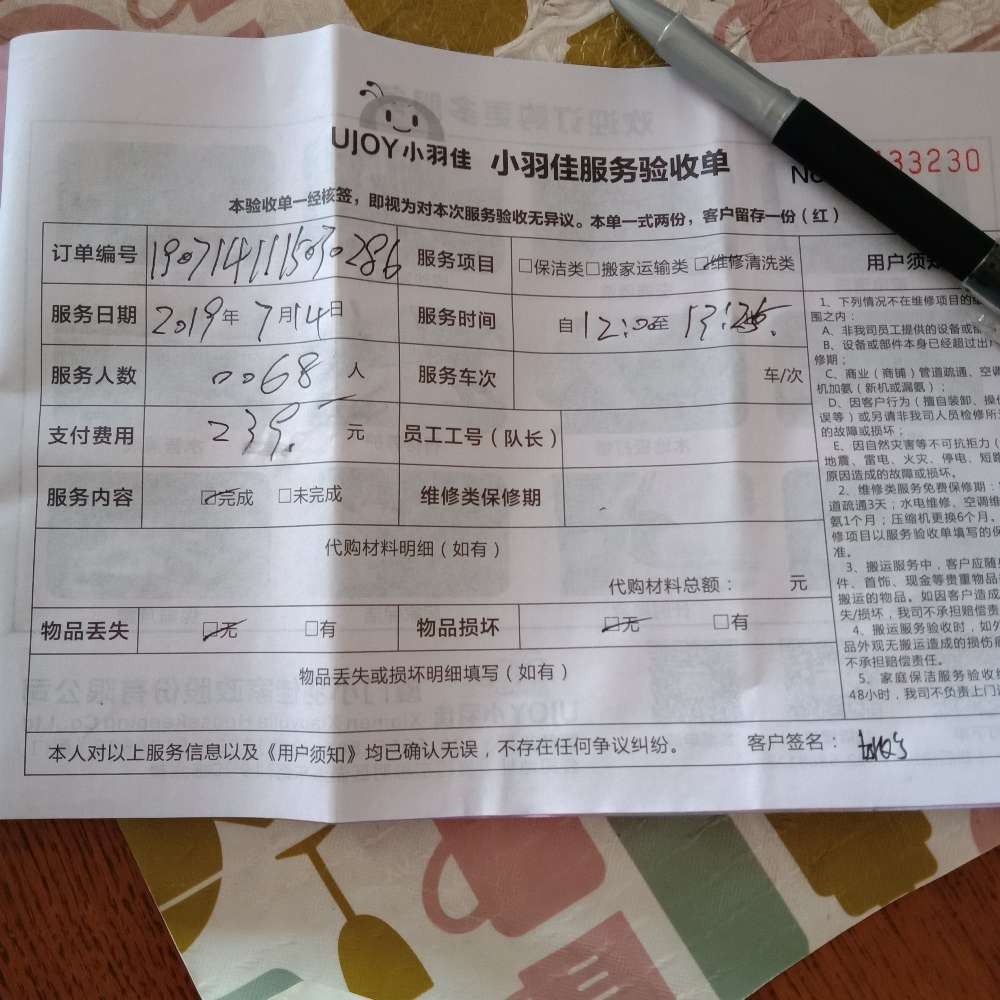 UJOY小羽佳 小羽佳服务验收单
No 33230
本验收单一经核签，即视为对本次服务验收无异议。本单一式两份，客户留存一份（红）
订单编号 服务项目 □保洁类□搬家运输类☑维修清洗类 用户须知
服务日期 2019年 7月14日 服务时间 自12:00至
服务人数 0068 人 服务车次 车/次
支付费用 239. 元 员工工号（队长）
服务内容 ☑完成 □未完成 维修类保修期
代购材料明细（如有）
代购材料总额： 元
物品丢失 ☑无 □有 物品损坏 ☑无 □有
物品丢失或损坏明细填写（如有）
本人对以上服务信息以及《用户须知》均已确认无误，不存在任何争议纠纷。 客户签名：
1、下列情况不在维修项目的
围之内：
A、非我司员工提供的设备或
B、设备或部件本身已经超过出
修期；
C、商业（商铺）管道疏通、空调
机加氨（新机或漏氨）；
D、因客户行为（擅自装卸、操作
误等）或另请非我司人员检修所
的故障或损坏；
E、因自然灾害等不可抗拒力（
地震、雷电、火灾、停电、短路
原因造成的故障或损坏。
2、维修类服务免费保修期：
道疏通3天；水电维修、空调维
氨1个月；压缩机更换6个月。
修项目以服务验收单填写的保
准。
3、搬运服务中，客户应随
件、首饰、现金等贵重物品
搬运的物品。如因客户造成
失/损坏，我司不承担赔偿责
4、搬运服务验收时，如外
品外观无搬运造成的损伤
不承担赔偿责任。
5、家庭保洁服务验收
48小时，我司不负责上门